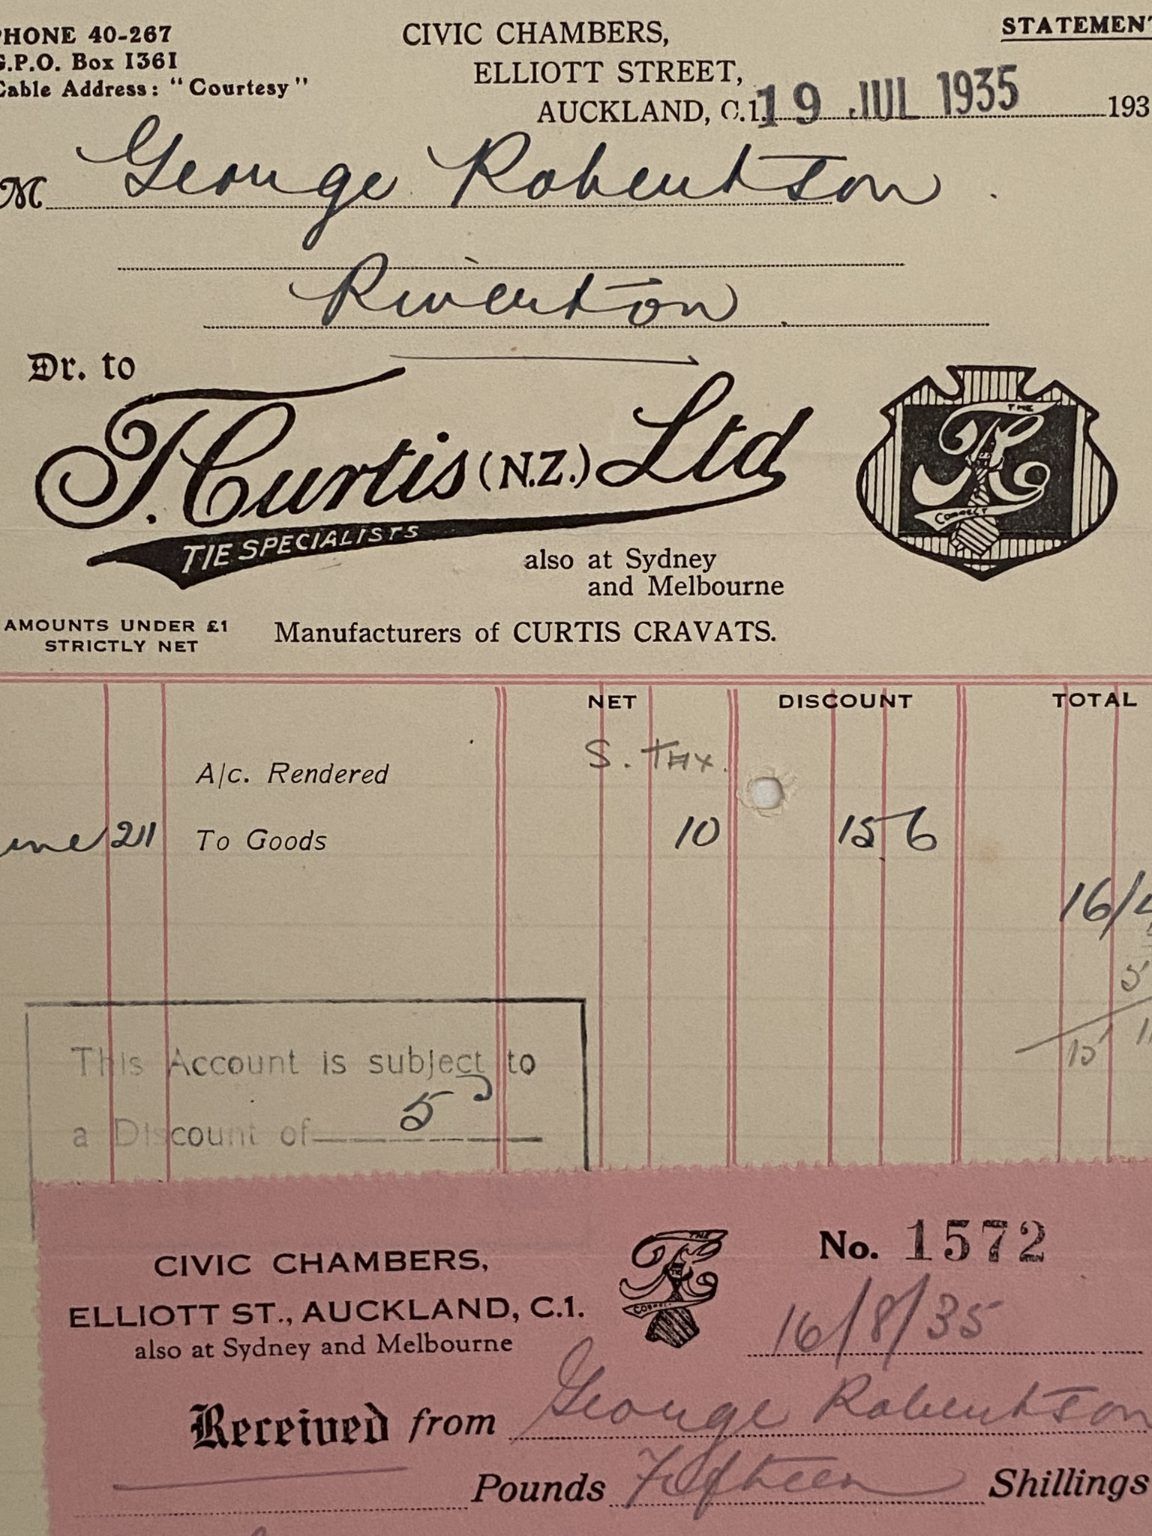 PHONE 40-267
G.P.O. Box 1361
Cable Address: "Courtesy"
CIVIC CHAMBERS,
ELLIOTT STREET,
AUCKLAND, C.1. 19 JUL 1935 193
STATEMENT
M George Robertson.
Riverton.
Dr. to
T. Curtis (N.Z.) Ltd
TIE SPECIALISTS
also at Sydney
and Melbourne
THE
TC
CORRECT
AMOUNTS UNDER £1
STRICTLY NET
Manufacturers of CURTIS CRAVATS.
NET DISCOUNT TOTAL
S. TAX.
A/c. Rendered
une 21 To Goods 10 15 6
16/4
5
15 11
This Account is subject to
a Discount of 5
CIVIC CHAMBERS,
ELLIOTT ST., AUCKLAND, C.1.
also at Sydney and Melbourne
THE
TC
CORRECT
No. 1572
16/8/35
Received from George Robertson
Pounds Fifteen Shillings